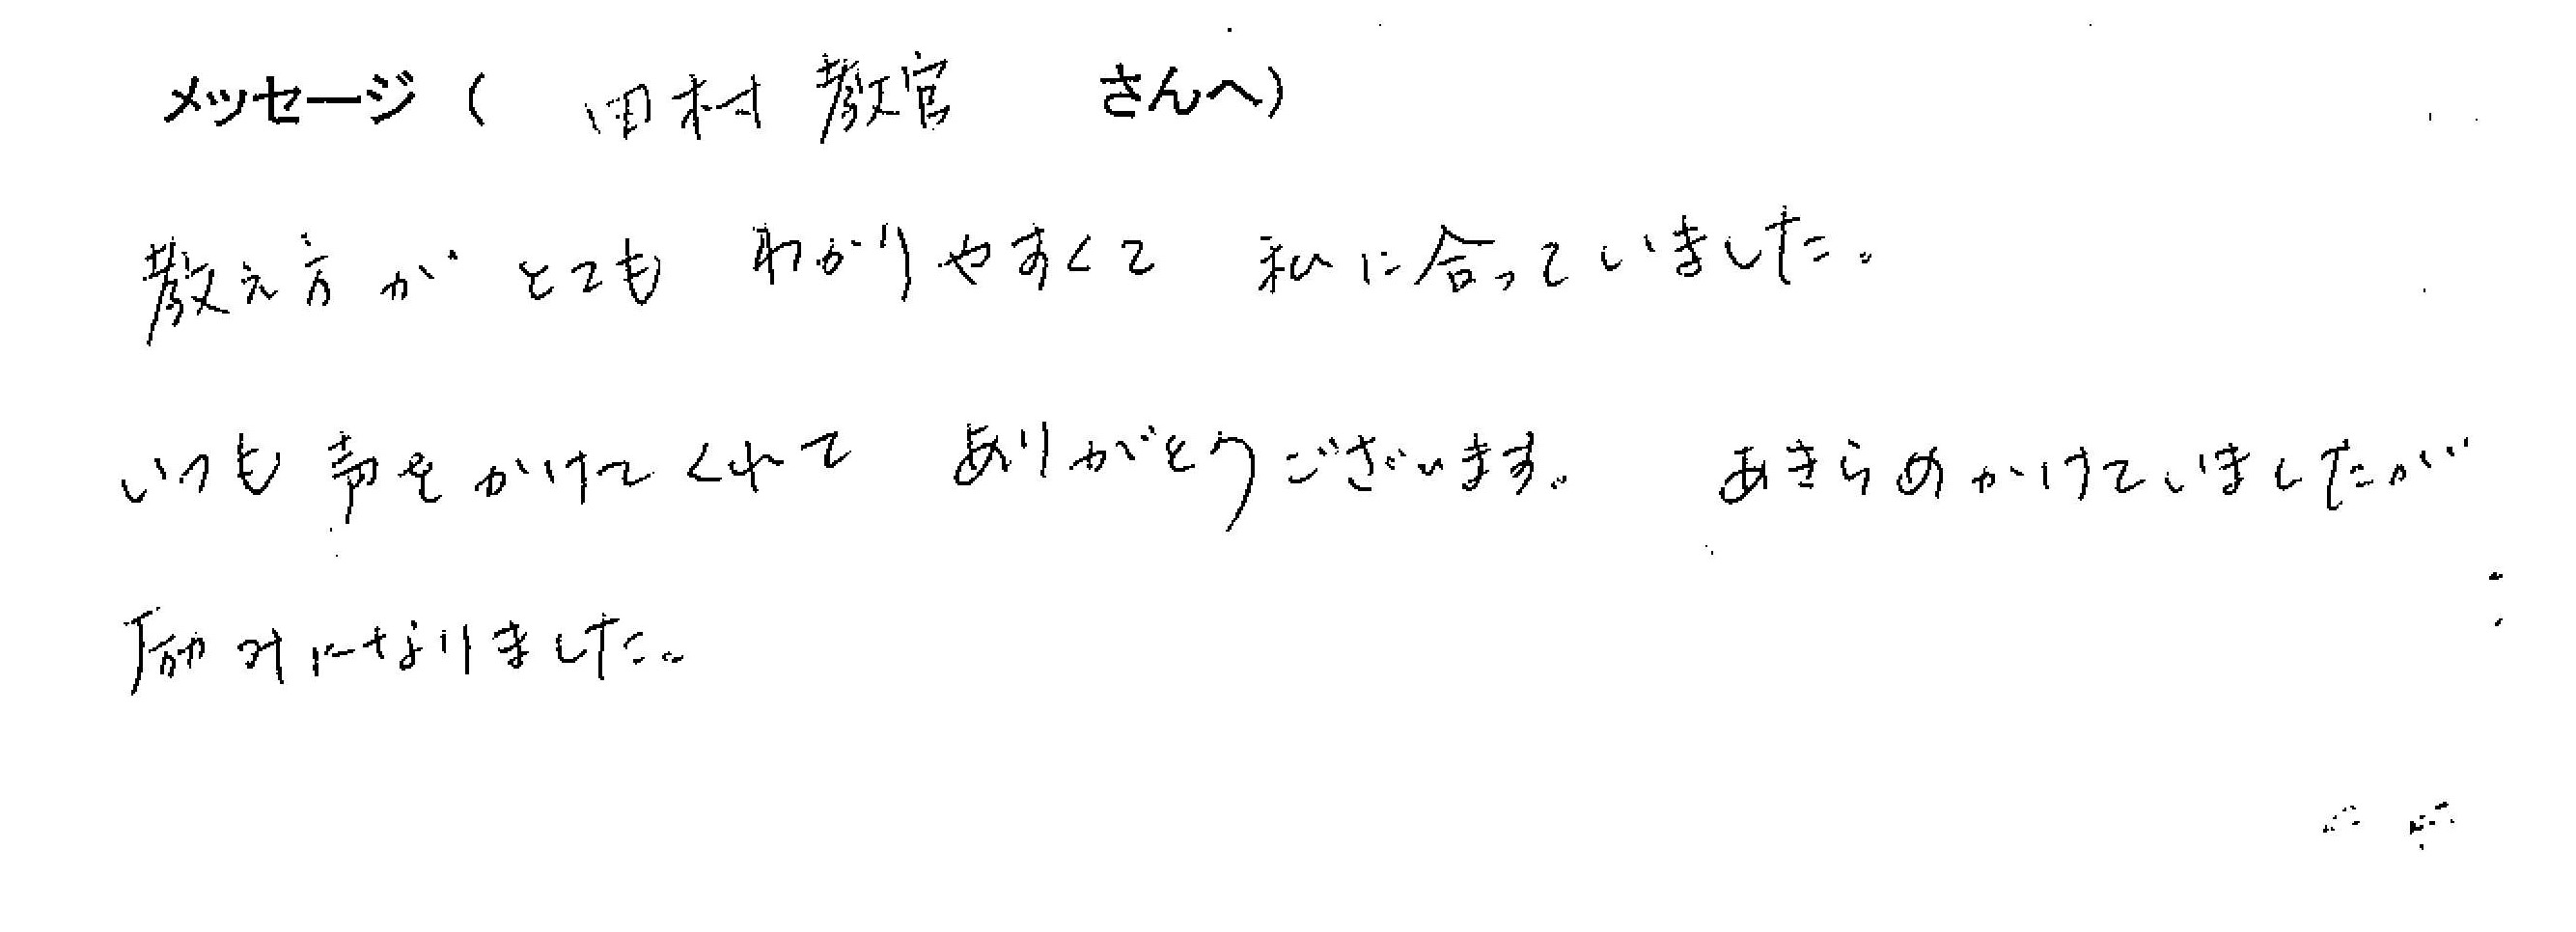 メッセージ( 田村教官 さんへ)
教え方が とても わかりやすくて 私に合っていました。
いつも声をかけてくれて ありがとうございます。 あきらめかけていましたが
励みになりました。